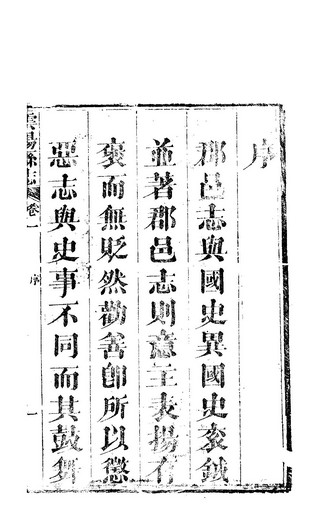 序
郡邑志與國史異國史袞鉞
並著郡邑志則意主表揚有
褒而無貶然勸善卽所以懲
惡志與史事不同而其鼓舞
雲陽縣志
卷一
序
一